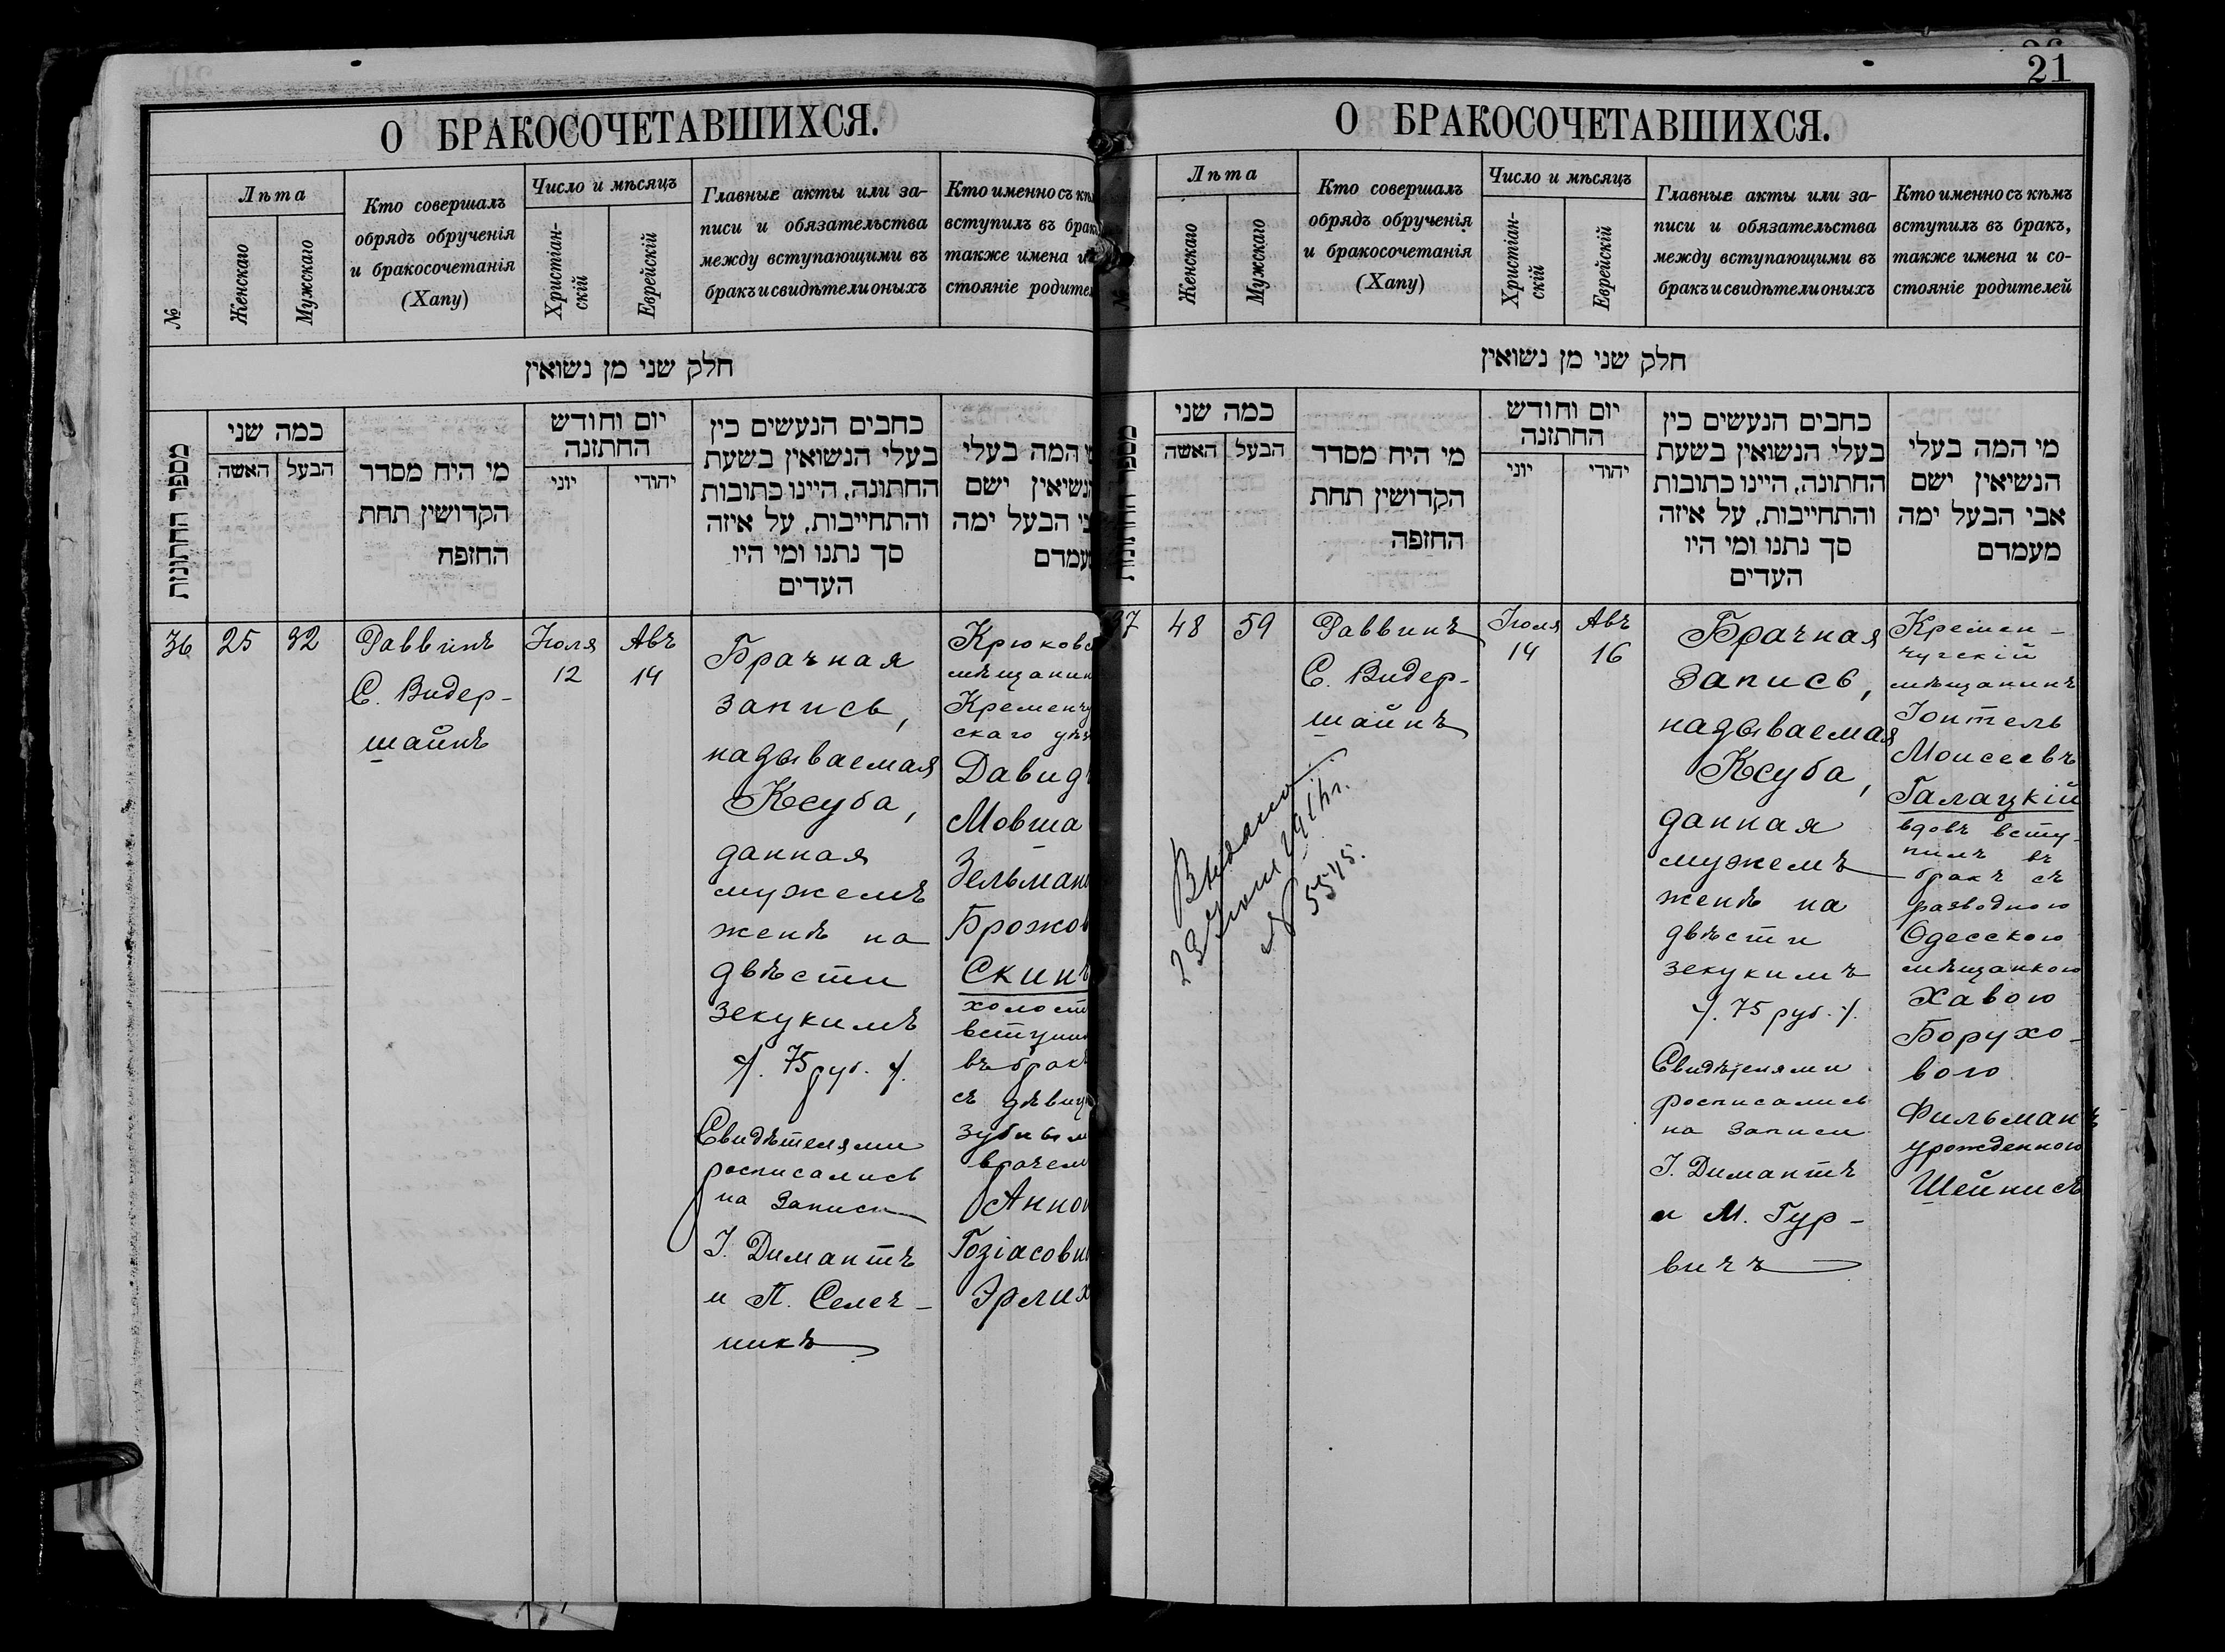 21
О БРАКОСОЧЕТАВШИХСЯ.
№
Лѣта
Женскаго
Мужскаго
Кто совершалъ
обрядъ обрученія
и бракосочетанія
(Хапу)
Число и мѣсяцъ
Христіан-
скій
Еврейскій
Главные акты или за-
писи и обязательства
между вступающими въ
бракъ и свидѣтели оныхъ
Кто именно съ кѣм
вступилъ въ брак
также имена и
стояніе родител
חלק שני מן נשואין
מספר החתונות
כמה שני
האשה
הבעל
מי היח מסדר
הקדושין תחת
החזפח
יום וחודש
החתזנה
יוני
יהודי
כחבים הנעשים כין
בעלי הנשואין בשעת
החתונה, היינו כתובות
והתחייבות, על איזה
סך נתנו ומי היו
העדים
המה בעלי
הנשיאין ישם
בי הבעל ימה
מעמדם
36
25
32
Раввинъ
С. Видер-
шайнъ
Іюля
12
Авъ
14
Брачная
запись,
называемая
Ксуба,
данная
мужемъ
женѣ на
двѣсти
зекукимъ
/. 75 руб. /.
Свидѣтелями
росписались
на записи
І. Димантъ
и П. Селеч-
никъ
Крюковс
мѣщанин
Кременчу
скаго уѣз
Давидъ
Мовша
Зельман
Брожов
Скинъ
холост
вступил
въ бракъ
съ дѣвиц
зубным
врачем
Анно
Гозіасовн
Эрлих
О БРАКОСОЧЕТАВШИХСЯ.
№
Лѣта
Женскаго
Мужскаго
Кто совершалъ
обрядъ обрученія
и бракосочетанія
(Хапу)
Число и мѣсяцъ
Христіан-
скій
Еврейскій
Главные акты или за-
писи и обязательства
между вступающими въ
бракъ и свидѣтели оныхъ
Кто именно съ кѣмъ
вступилъ въ бракъ,
также имена и со-
стояніе родителей
חלק שני מן נשואין
כמה שני
האשה
הבעל
מי היח מסדר
הקדושין תחת
החזפה
יום וחודש
החתזנה
יוני
יהודי
כחבים הנעשים כין
בעלי הנשואין בשעת
החתונה, היינו כתובות
והתחייבות, על איזה
סך נתנו ומי היו
העדים
מי המה בעלי
הנשיאין ישם
אבי הבעל ימה
מעמדם
37
48
59
Раввинъ
С. Видер-
шайнъ
Іюля
14
Авъ
16
Выдано
23 Іюля 1914 г.
№ 5545.
Брачная
запись,
называемая
Ксуба,
данная
мужемъ
женѣ на
двѣсти
зекукимъ
/. 75 руб. /.
Свидѣтелями
росписались
на записи
І. Димантъ
и М. Гур-
вичъ
Кремен-
чугскій
мѣщанинъ
Іоитель
Моисеевъ
Галацкій
вдовъ всту-
пилъ въ
бракъ съ
разводною
Одесскою
мѣщанкою
Хавою
Борухо-
вою
Фильманъ
урожденною
Шейнисъ